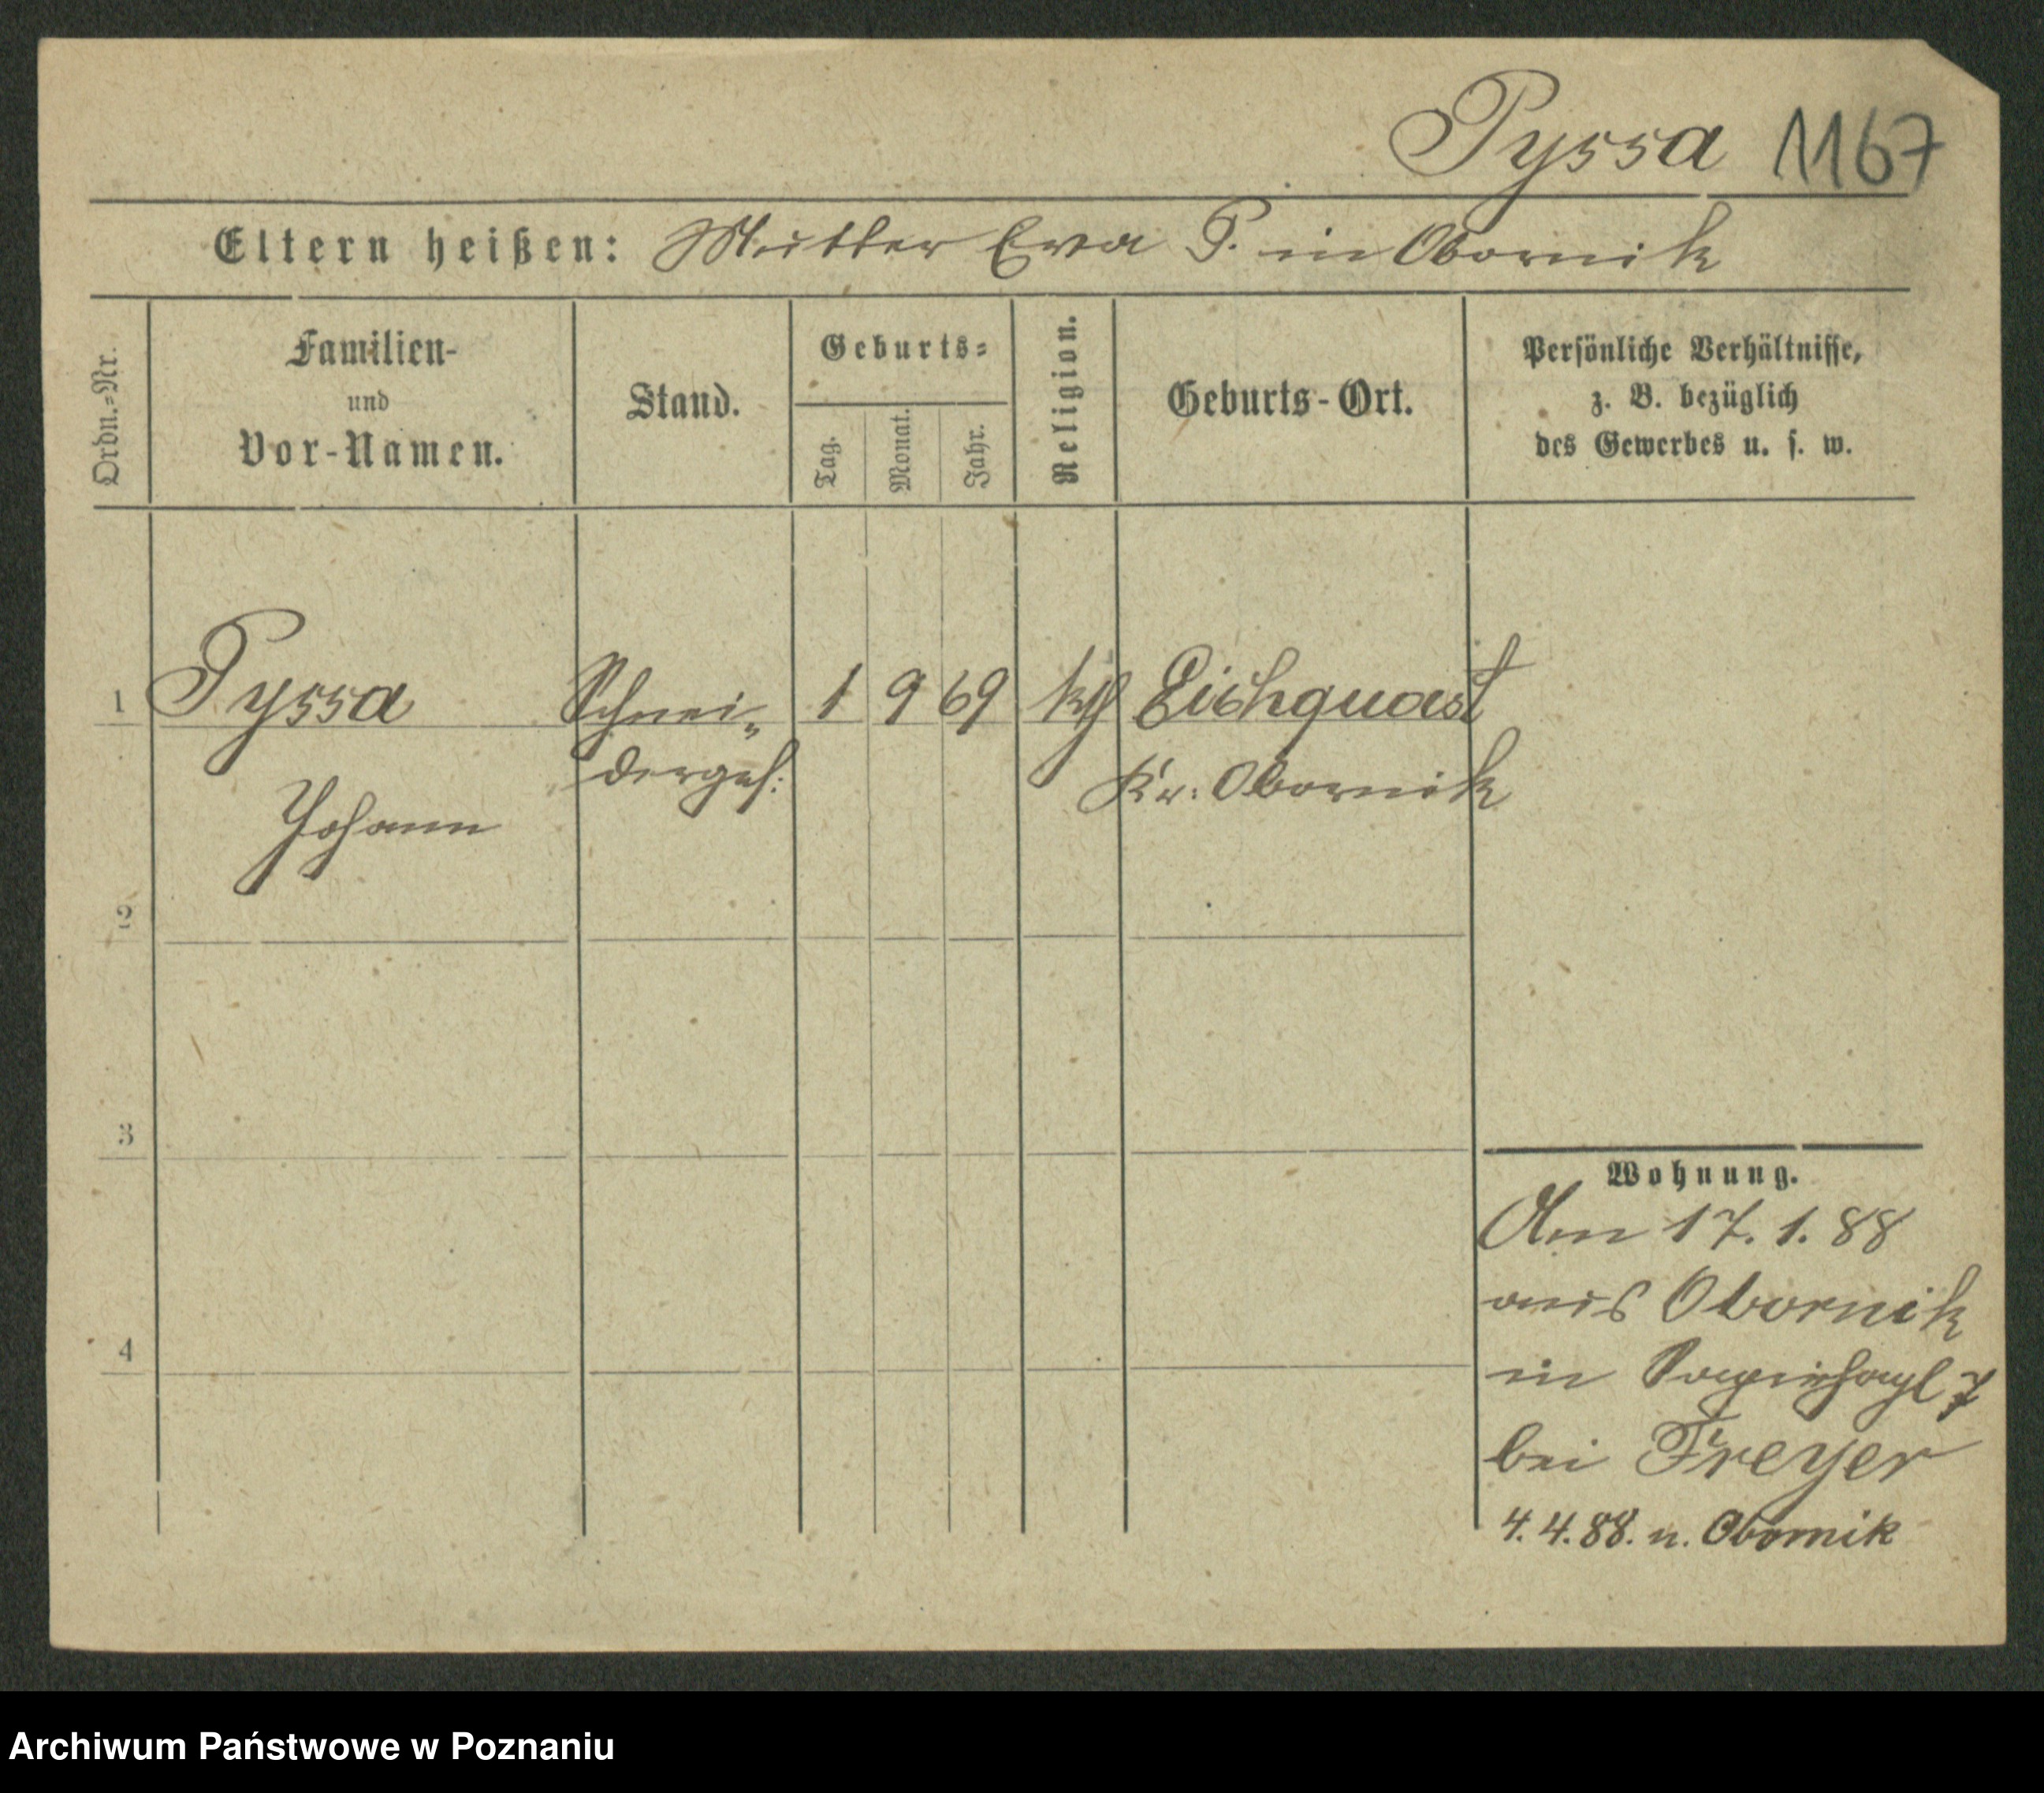 Pyssa 1167
Eltern heißen: Mutter Eva P. in Obornik
Ordn.=Nr.
Familien-
und
Vor-Namen.
Stand.
Geburts=
Tag.
Monat.
Jahr.
Religion.
Geburts-Ort.
Persönliche Verhältnisse,
z. B. bezüglich
des Gewerbes u. s. w.
1 Pyssa Schnei- 1 9 69 kth Eishquast
derges: Kr. Obornik
Johann
2
3
4
Wohnung.
Am 17. 1. 88
aus Obornik
in 7
bei Freyer
4. 4. 88. n. Obornik
Archiwum Państwowe w Poznaniu